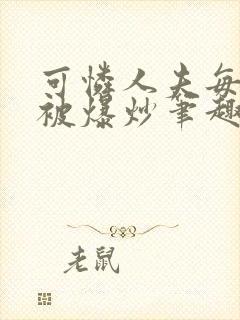 可憐人夫每
被爆炒筆趣
老鼠